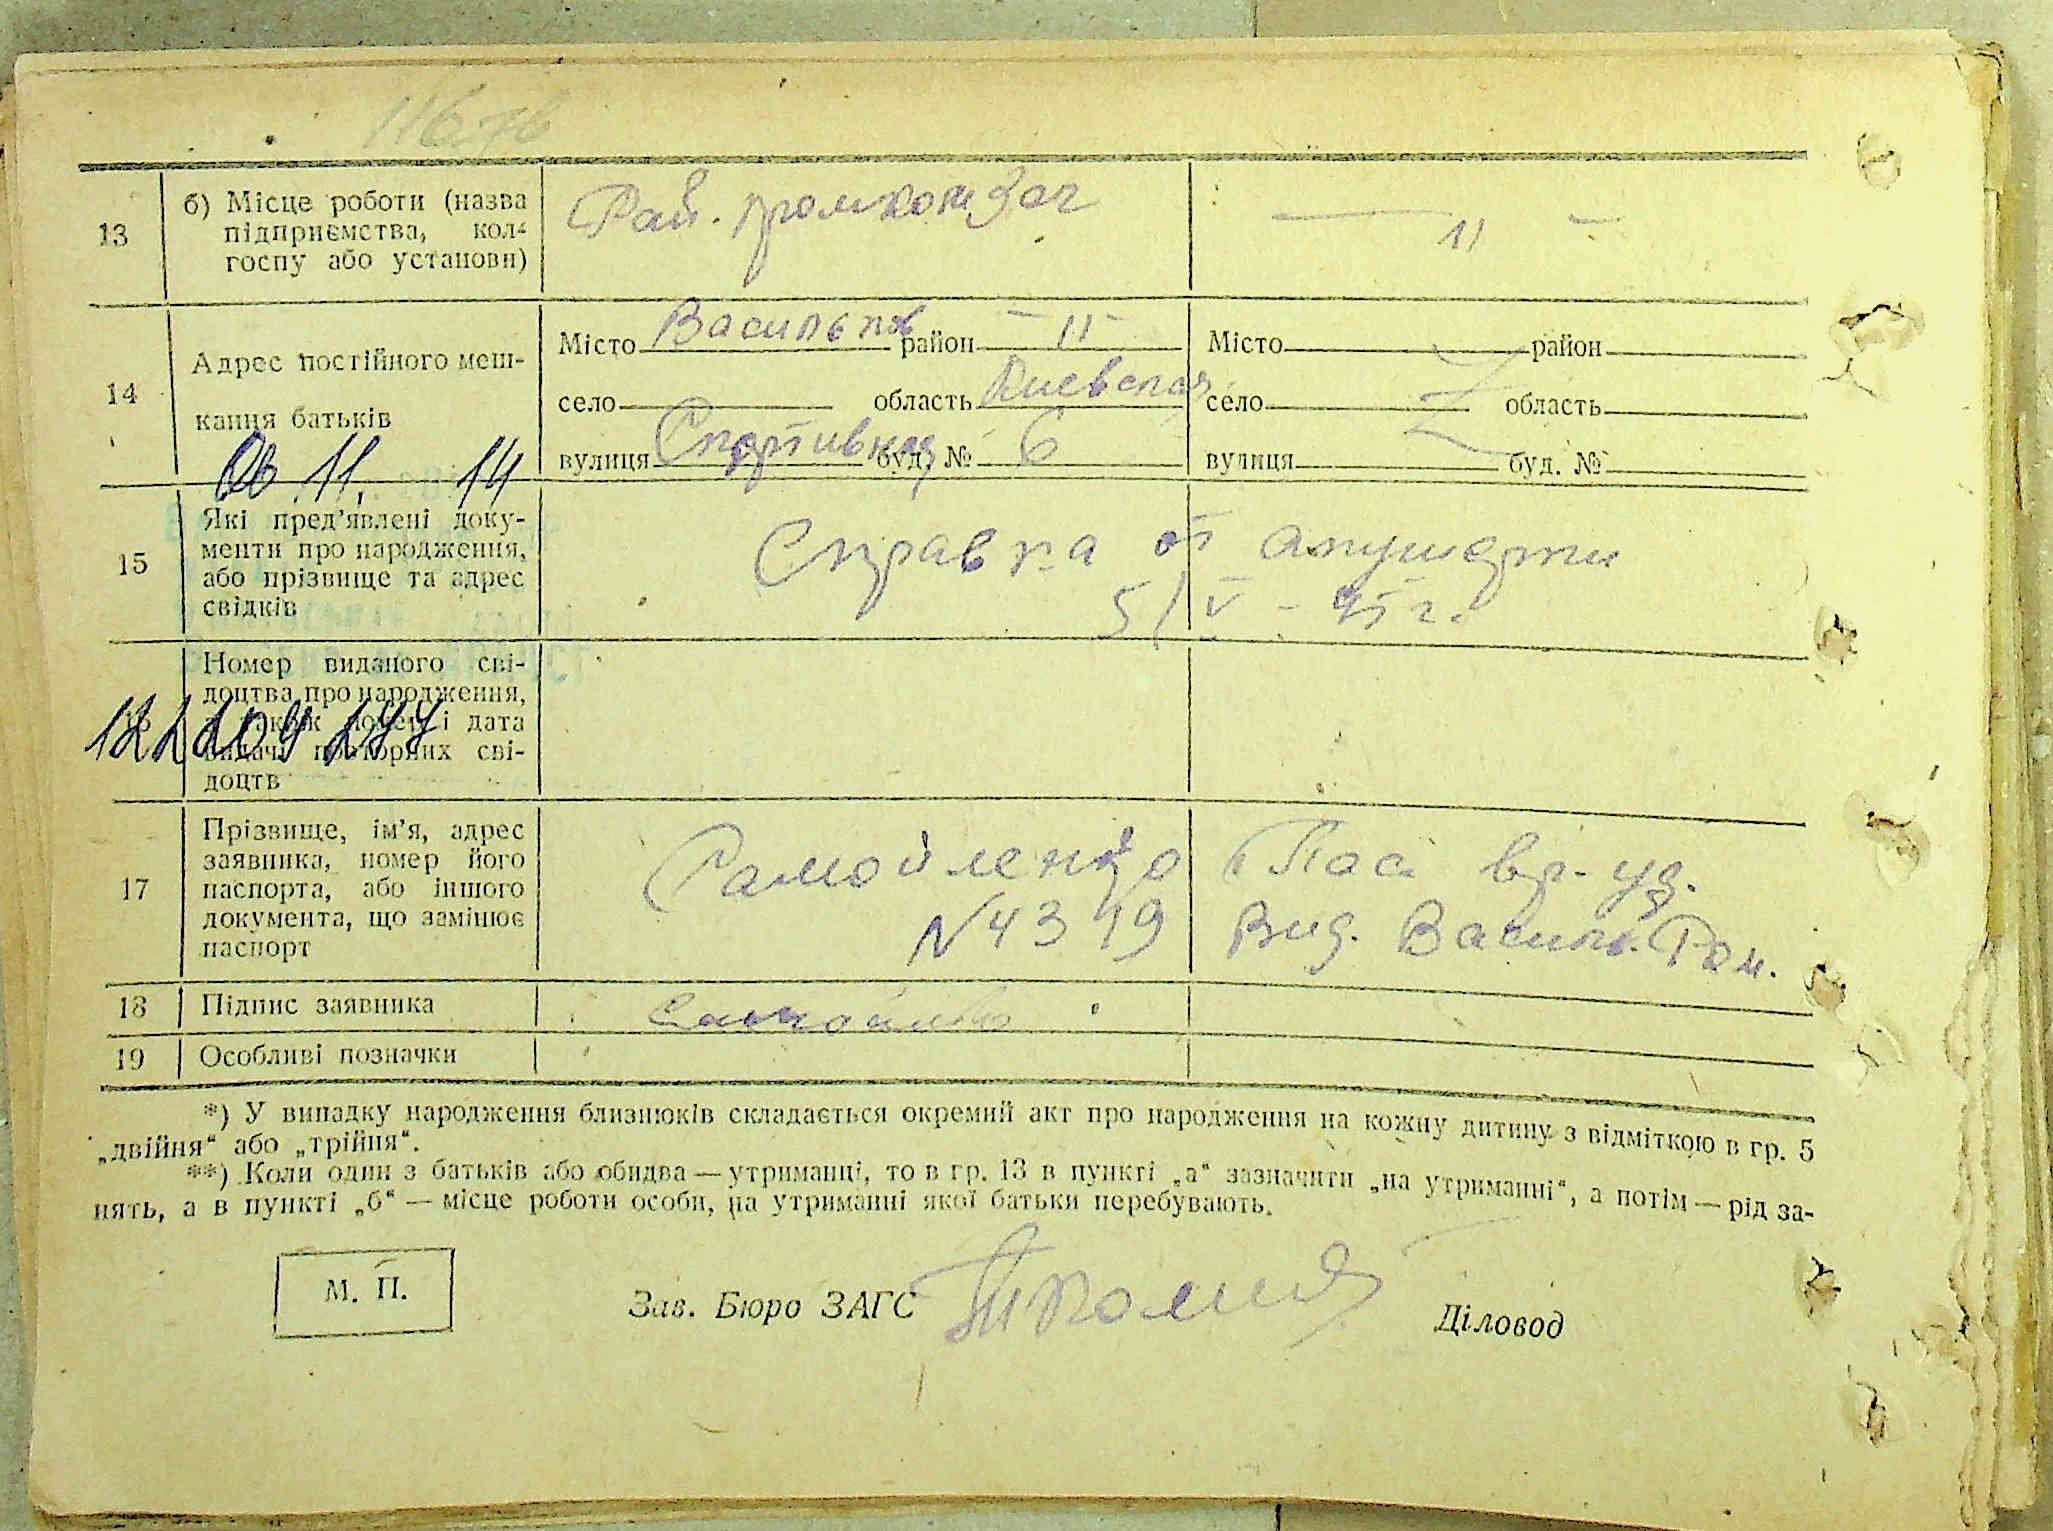 11676
13
б) Місце роботи (назва
підприємства, кол-
госпу або установи)
Рай. промкомзаг
— 11 —
14
Адрес постійного меш-
кання батьків
Місто Васильков район — 11 —
село область Киевская
вулиця Спортивная буд. № 6
Місто район
село область
вулиця буд. №
06.11. 14
15
Які пред’явлені доку-
менти про народження,
або прізвище та адрес
свідків
Справка от акушерки
5/V - 45 г.
Номер виданого сві-
доцтва про народження,
а також номер і дата
видачі повторних сві-
доцтв
17
Прізвище, ім’я, адрес
заявника, номер його
паспорта, або іншого
документа, що замінює
паспорт
Самойленко Пас. вр. уд.
N 4319 Выд. Васильк. Ром.
18
Підпис заявника
19
Особливі позначки
*) У випадку народження близнюків складається окремий акт про народження на кожну дитину з відміткою в гр. 5
„двійня“ або „трійня“.
**) Коли один з батьків або обидва — утриманці, то в гр. 13 в пункті „а“ зазначити „на утриманні“, а потім — рід за-
нять, а в пункті „б“ — місце роботи особи, на утриманні якої батьки перебувають.
М. П.
Зав. Бюро ЗАГС
Діловод